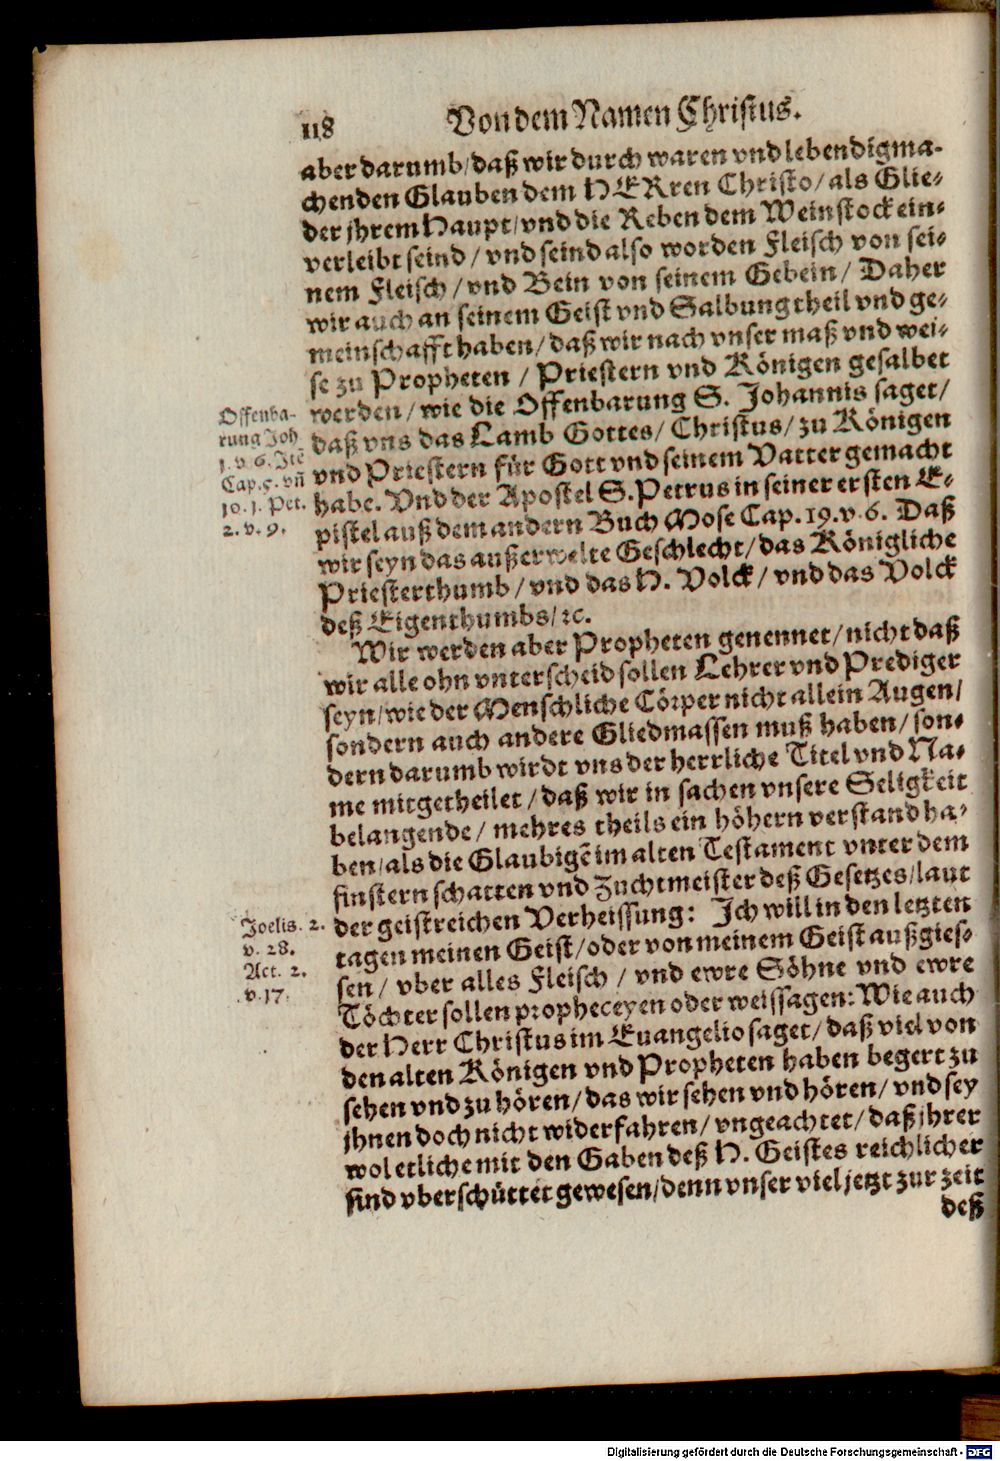 118
Von dem Namen Christus.
aber darumb/daß wir durch waren vnd lebendigma-
chenden Glauben dem HERren Christo/als Glie-
der jhrem Haupt/vnd die Reben dem Weinstock ein-
verleibt seind/vnd seind also worden Fleisch von sei-
nem Fleisch/vnd Bein von seinem Gebein/Daher
wir auch an seinem Geist vnd Salbung theil vnd ge-
meinschafft haben/daß wir nach vnser maß vnd wei-
se zu Propheten/Priestern vnd Königen gesalbet
werden/wie die Offenbarung S. Johannis saget/
daß vns das Lamb Gottes/Christus/zu Königen
vnd Priestern für Gott vnd seinem Vatter gemacht
habe. Vnd der Apostel S. Petrus in seiner ersten E-
pistel auß dem andern Buch Mose Cap. 19. v. 6. Daß
wir seyn das außerwelte Geschlecht/das Königliche
Priesterthumb/vnd das H. Volck/vnd das Volck
deß Eigenthumbs/ꝛc.
Offenba-
rung Joh
1. v. 6. Itē
Cap. 5. vñ
10. 1. Pet.
2. v. 9.
Wir werden aber Propheten genennet/nicht daß
wir alle ohn vnterscheid sollen Lehrer vnd Prediger
seyn/wie der Menschliche Cörper nicht allein Augen/
sondern auch andere Gliedmassen muß haben/son-
dern darumb wirdt vns der herrliche Titel vnd Na-
me mitgetheilet/daß wir in sachen vnsere Seligkeit
belangende/mehres theils ein höhern verstand ha-
ben/als die Glaubigē im alten Testament vnter dem
finstern schatten vnd Zuchtmeister deß Gesetzes/laut
der geistreichen Verheissung: Ich will in den letzten
tagen meinen Geist/oder von meinem Geist außgies-
sen/vber alles Fleisch/vnd ewre Söhne vnd ewre
Töchter sollen propheceyen oder weissagen: Wie auch
der Herr Christus im Euangelio saget/daß viel von
den alten Königen vnd Propheten haben begert zu
sehen vnd zu hören/das wir sehen vnd hören/vnd sey
jhnen doch nicht widerfahren/vngeachtet/daß jhrer
wol etliche mit den Gaben deß H. Geistes reichlicher
sind vberschüttet gewesen/denn vnser viel jetzt zur zeit
deß
Joelis. 2.
v. 28.
Act. 2.
v. 17.
Digitalisierung gefördert durch die Deutsche Forschungsgemeinschaft - DFG